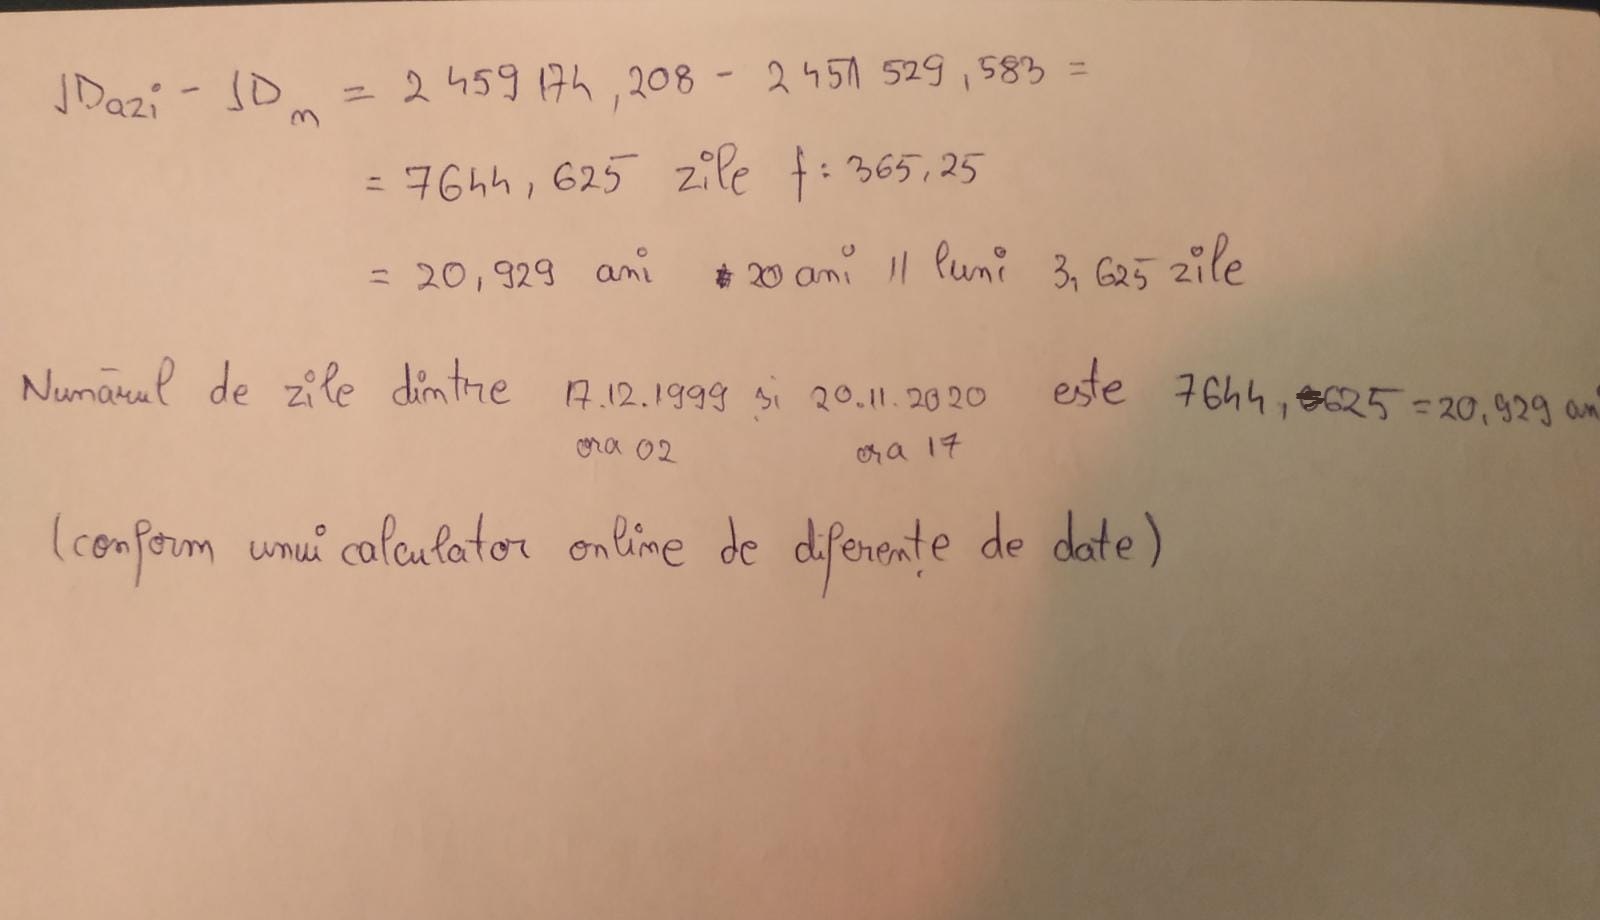 JDazi - JDn = 2 459 174,208 - 2 451 529,583 =
= 7644,625 zile f: 365,25
= 20,929 ani 20 ani 11 luni 3,625 zile
Numărul de zile dintre 17.12.1999 și 20.11.2020 este 7644,625 = 20,929 an
ora 02 ora 17
(conform unui calculator online de diferențe de date)